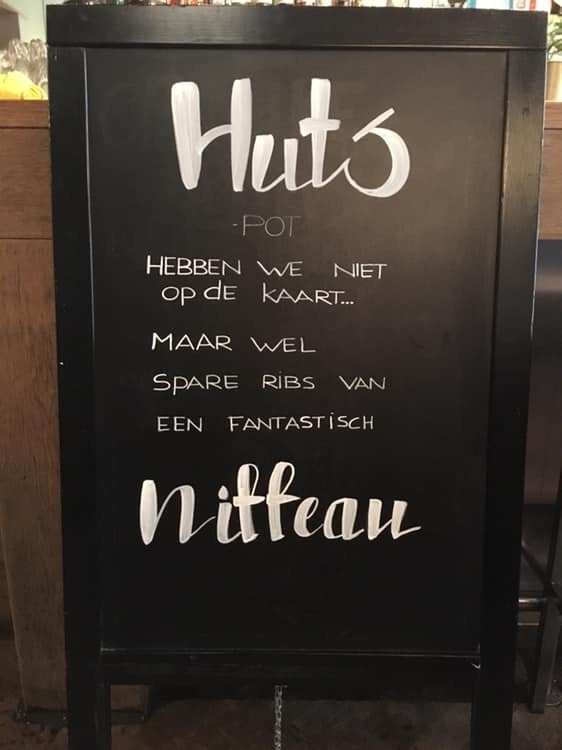 Huts
-POT
HEBBEN WE NIET
OP DE KAART...
MAAR WEL
SPARE RIBS VAN
EEN FANTASTISCH
niffeau